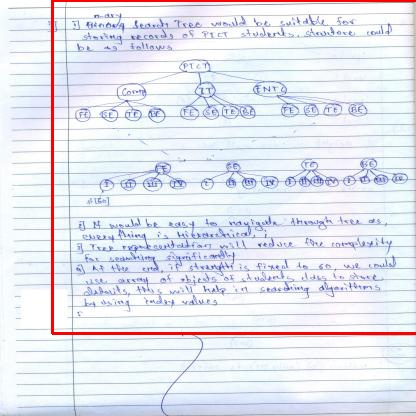 n-ary
1] Search Tree would be suitable for
storing records of PICT students, structure could
be as follows
PICT
Comp IT ENTC
FE SE TE BE FE SE TE BE FE SE TE BE
FE SE TE BE
I II III IV I II III IV I II III IV I II III IV
s[60]
It would be easy to navigate through tree as,
everything is hierarchical;
Tree representation will reduce the complexity
for searching significantly
At the end, if strength is fixed to 60, we could
use array of objects of students class to store
this will help in searching algorithms
by using index values